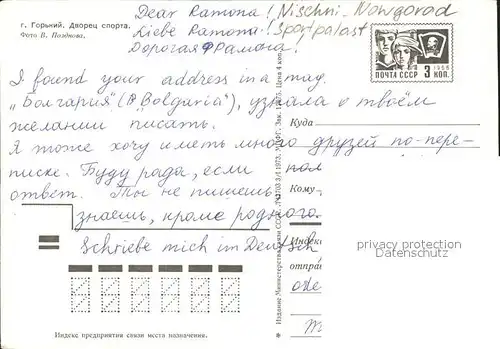 Dear Ramona! Nischni-Nowgorod
г. Горький. Дворец спорта.
Фото В. Позднова.
Liebe Ramona! Sportpalast
Дорогая Рамона!
ПОЧТА СССР 3 КОП.
1966
I found your address in a mag.
„Болгария“ (A „Bolgaria“), узнала о твоём
желании писать.
Куда
Я тоже хочу иметь много друзей по пере-
писке. Буду рада, если пол
ответ. Ты не пишешь,
Кому
знаешь, кроме родного.
Schriebe mich im Deutsch
Индекс
отправ
privacy protection
Datenschutz
Издание Министерства связи СССР.
Индекс предприятия связи места назначения.